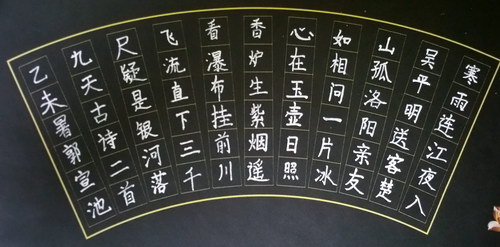 寒雨连江夜入
吴平明送客楚
山孤洛阳亲友
如相问一片冰
心在玉壶日照
香炉生紫烟遥
看瀑布挂前川
飞流直下三千
尺疑是银河落
九天古诗二首
乙未暑郭宣池